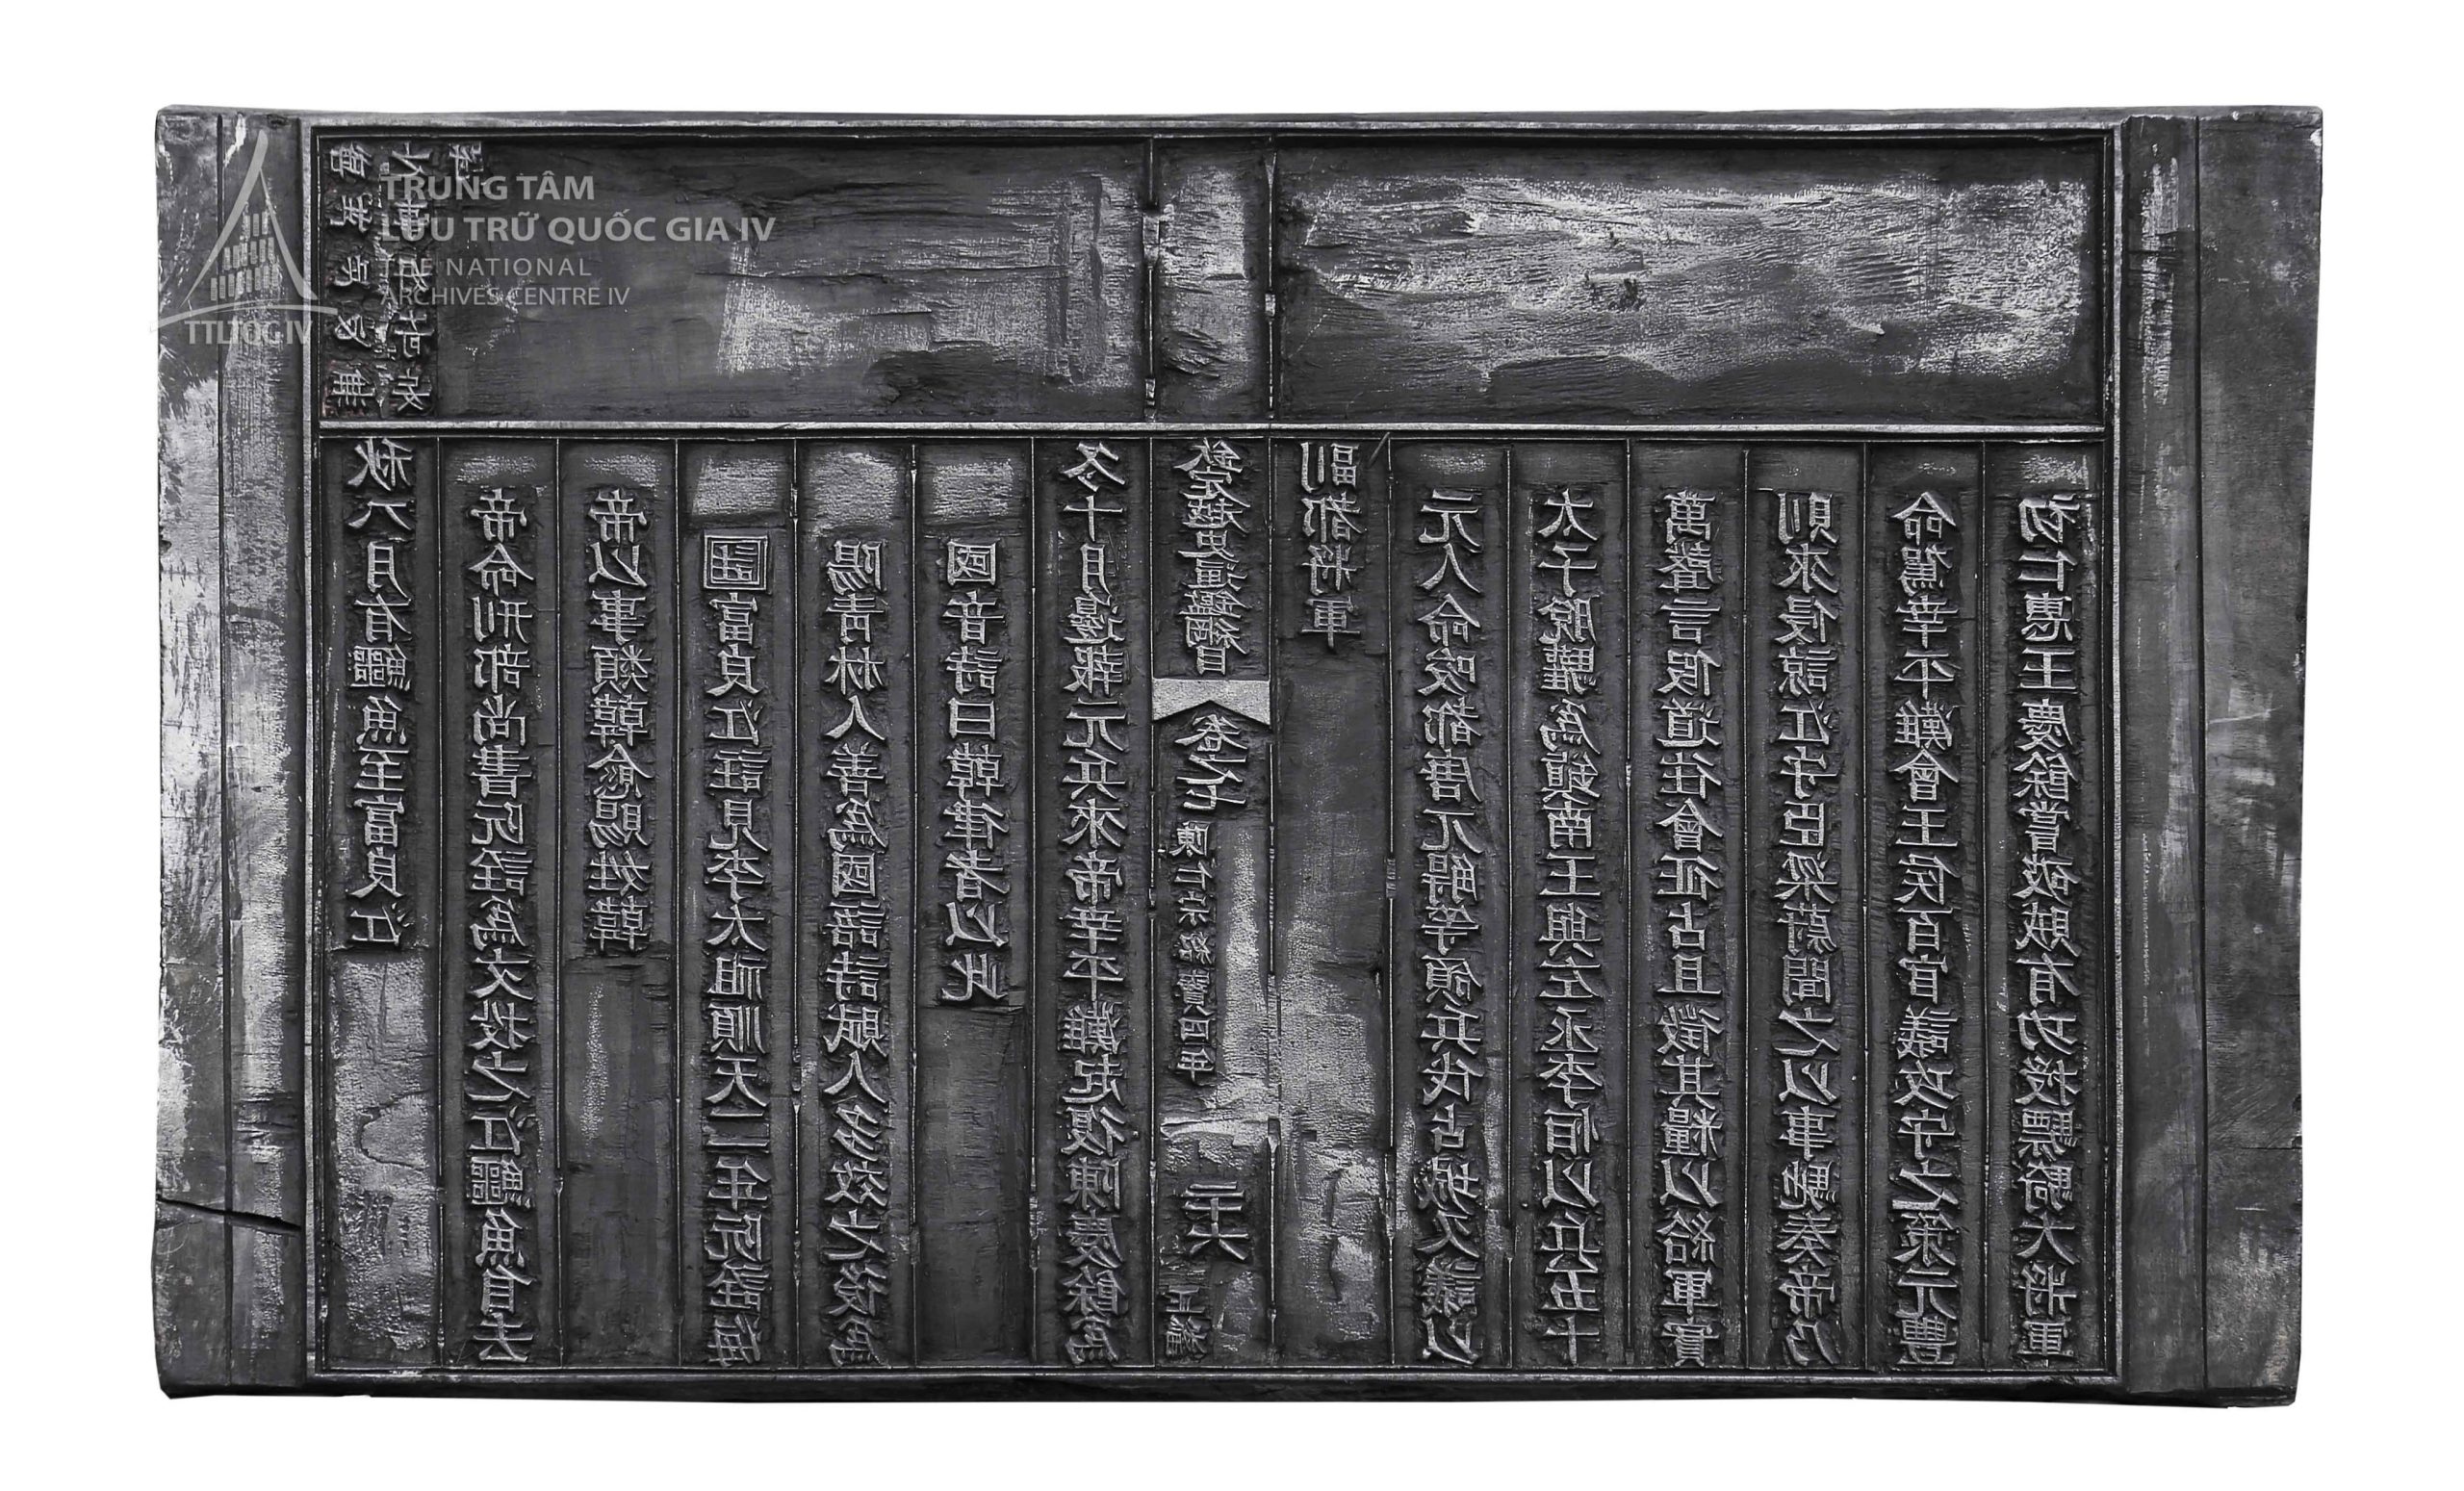 御批此必無
之事好奇妄
秋八月有鱷魚至富良江
帝命刑部尚書阮詮為文投之江鱷魚自去
帝以事類韓愈賜姓韓
註富良江註見李太祖順天二年阮詮海
陽青林人善為國語詩賦人多效之後為
國音詩曰韓律者以此
冬十月邊報元兵來帝幸平灘起復陳慶餘為
欽定越史通鑑綱目 卷之七 陳仁宗紹寶四年 二十六 正編
副都將軍
元人命唆都唐兀䚟等領兵伐占城又議以
太子脫驩為鎮南王與左丞李恒以兵五十
萬聲言假道往會征占且徵其糧以給軍實
則來侵諒江守臣梁蔚聞之以事馳奏帝乃
命駕幸平灘會王侯百官議攻守之策元豐
初仁惠王慶餘嘗破賊有功授驃騎大將軍
TRUNG TÂM
LƯU TRỮ QUỐC GIA IV
THE NATIONAL
ARCHIVES CENTRE IV
TTLTQG IV